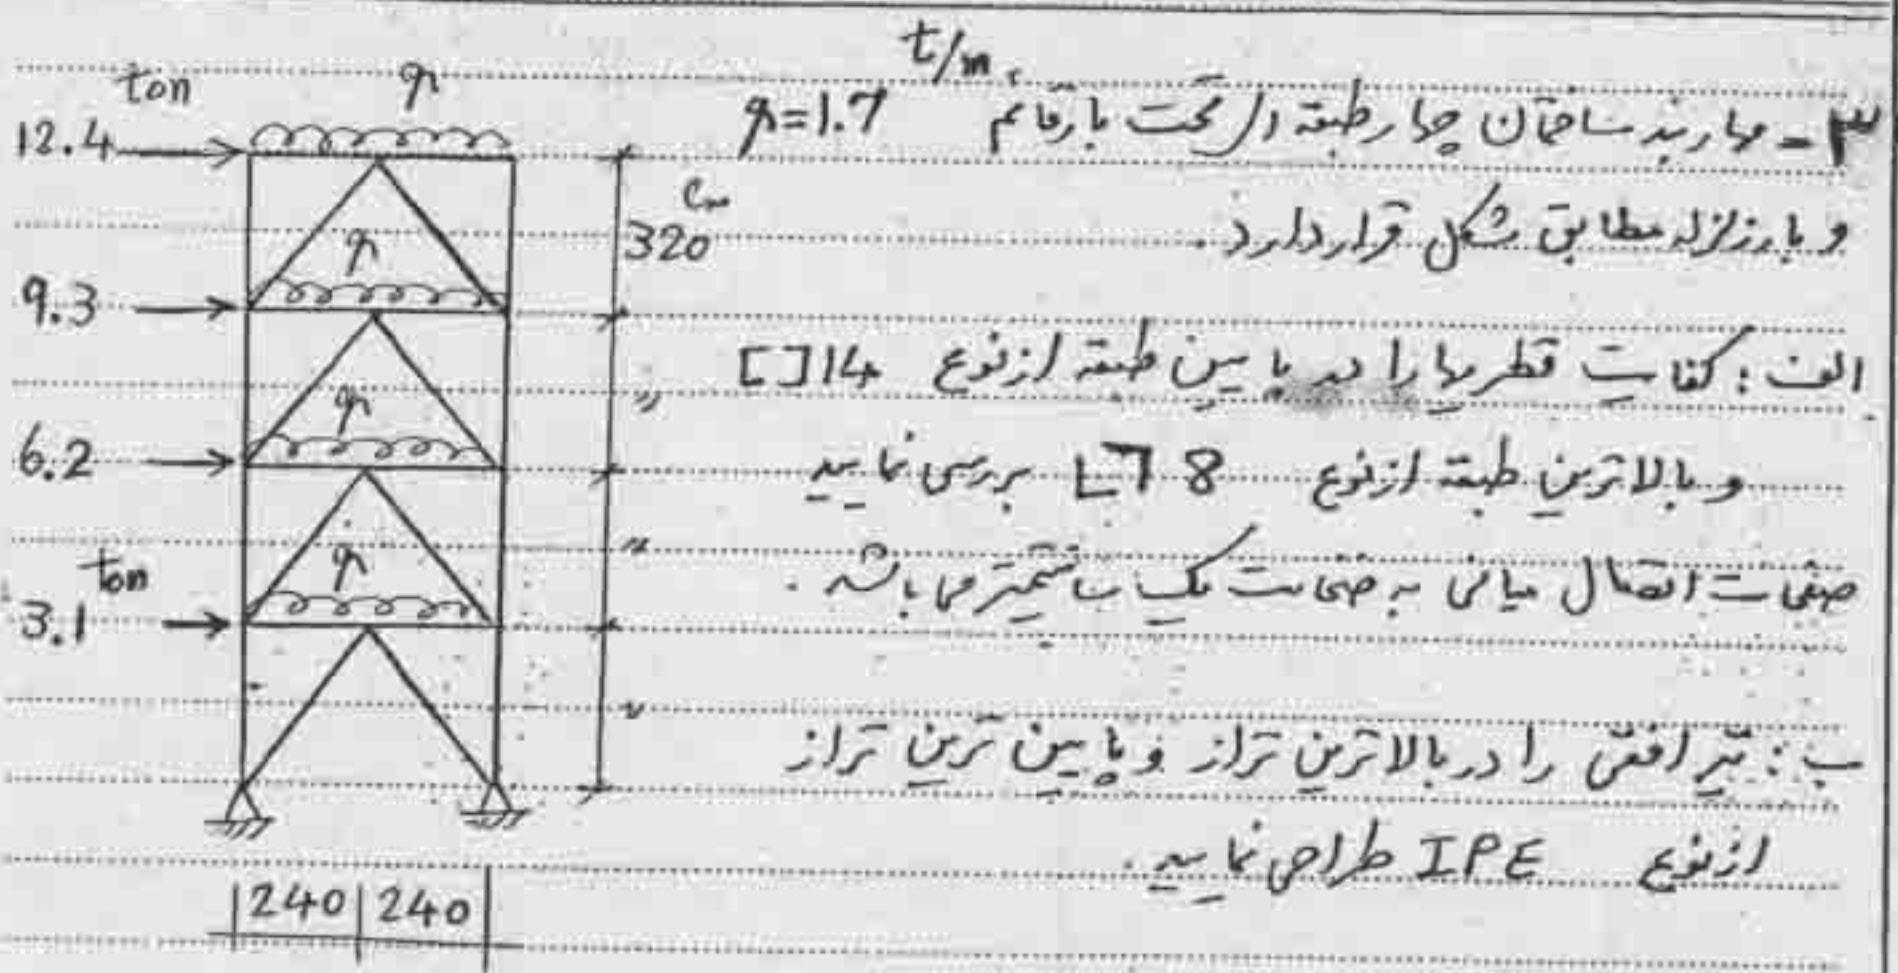 t/m
۳- مهاربند ساختمان چهار طبقه ای تحت بار قائم q=1.7
و بار زلزله مطابق شکل قرار دارد.
الف: کفایت قطریها را در پایین طبقه از نوع [] 14
و بالاترین طبقه از نوع 8 بررسی نمایید
صفحات اتصال میانی به ضخامت یک سانتیمتر می باشد.
ب: تیر افقی را در بالاترین تراز و پایین ترین تراز
از نوع IPE طراحی نمایید.
ton
q
12.4
cm
320
q
9.3
"
q
6.2
"
q
ton
3.1
"
240 240